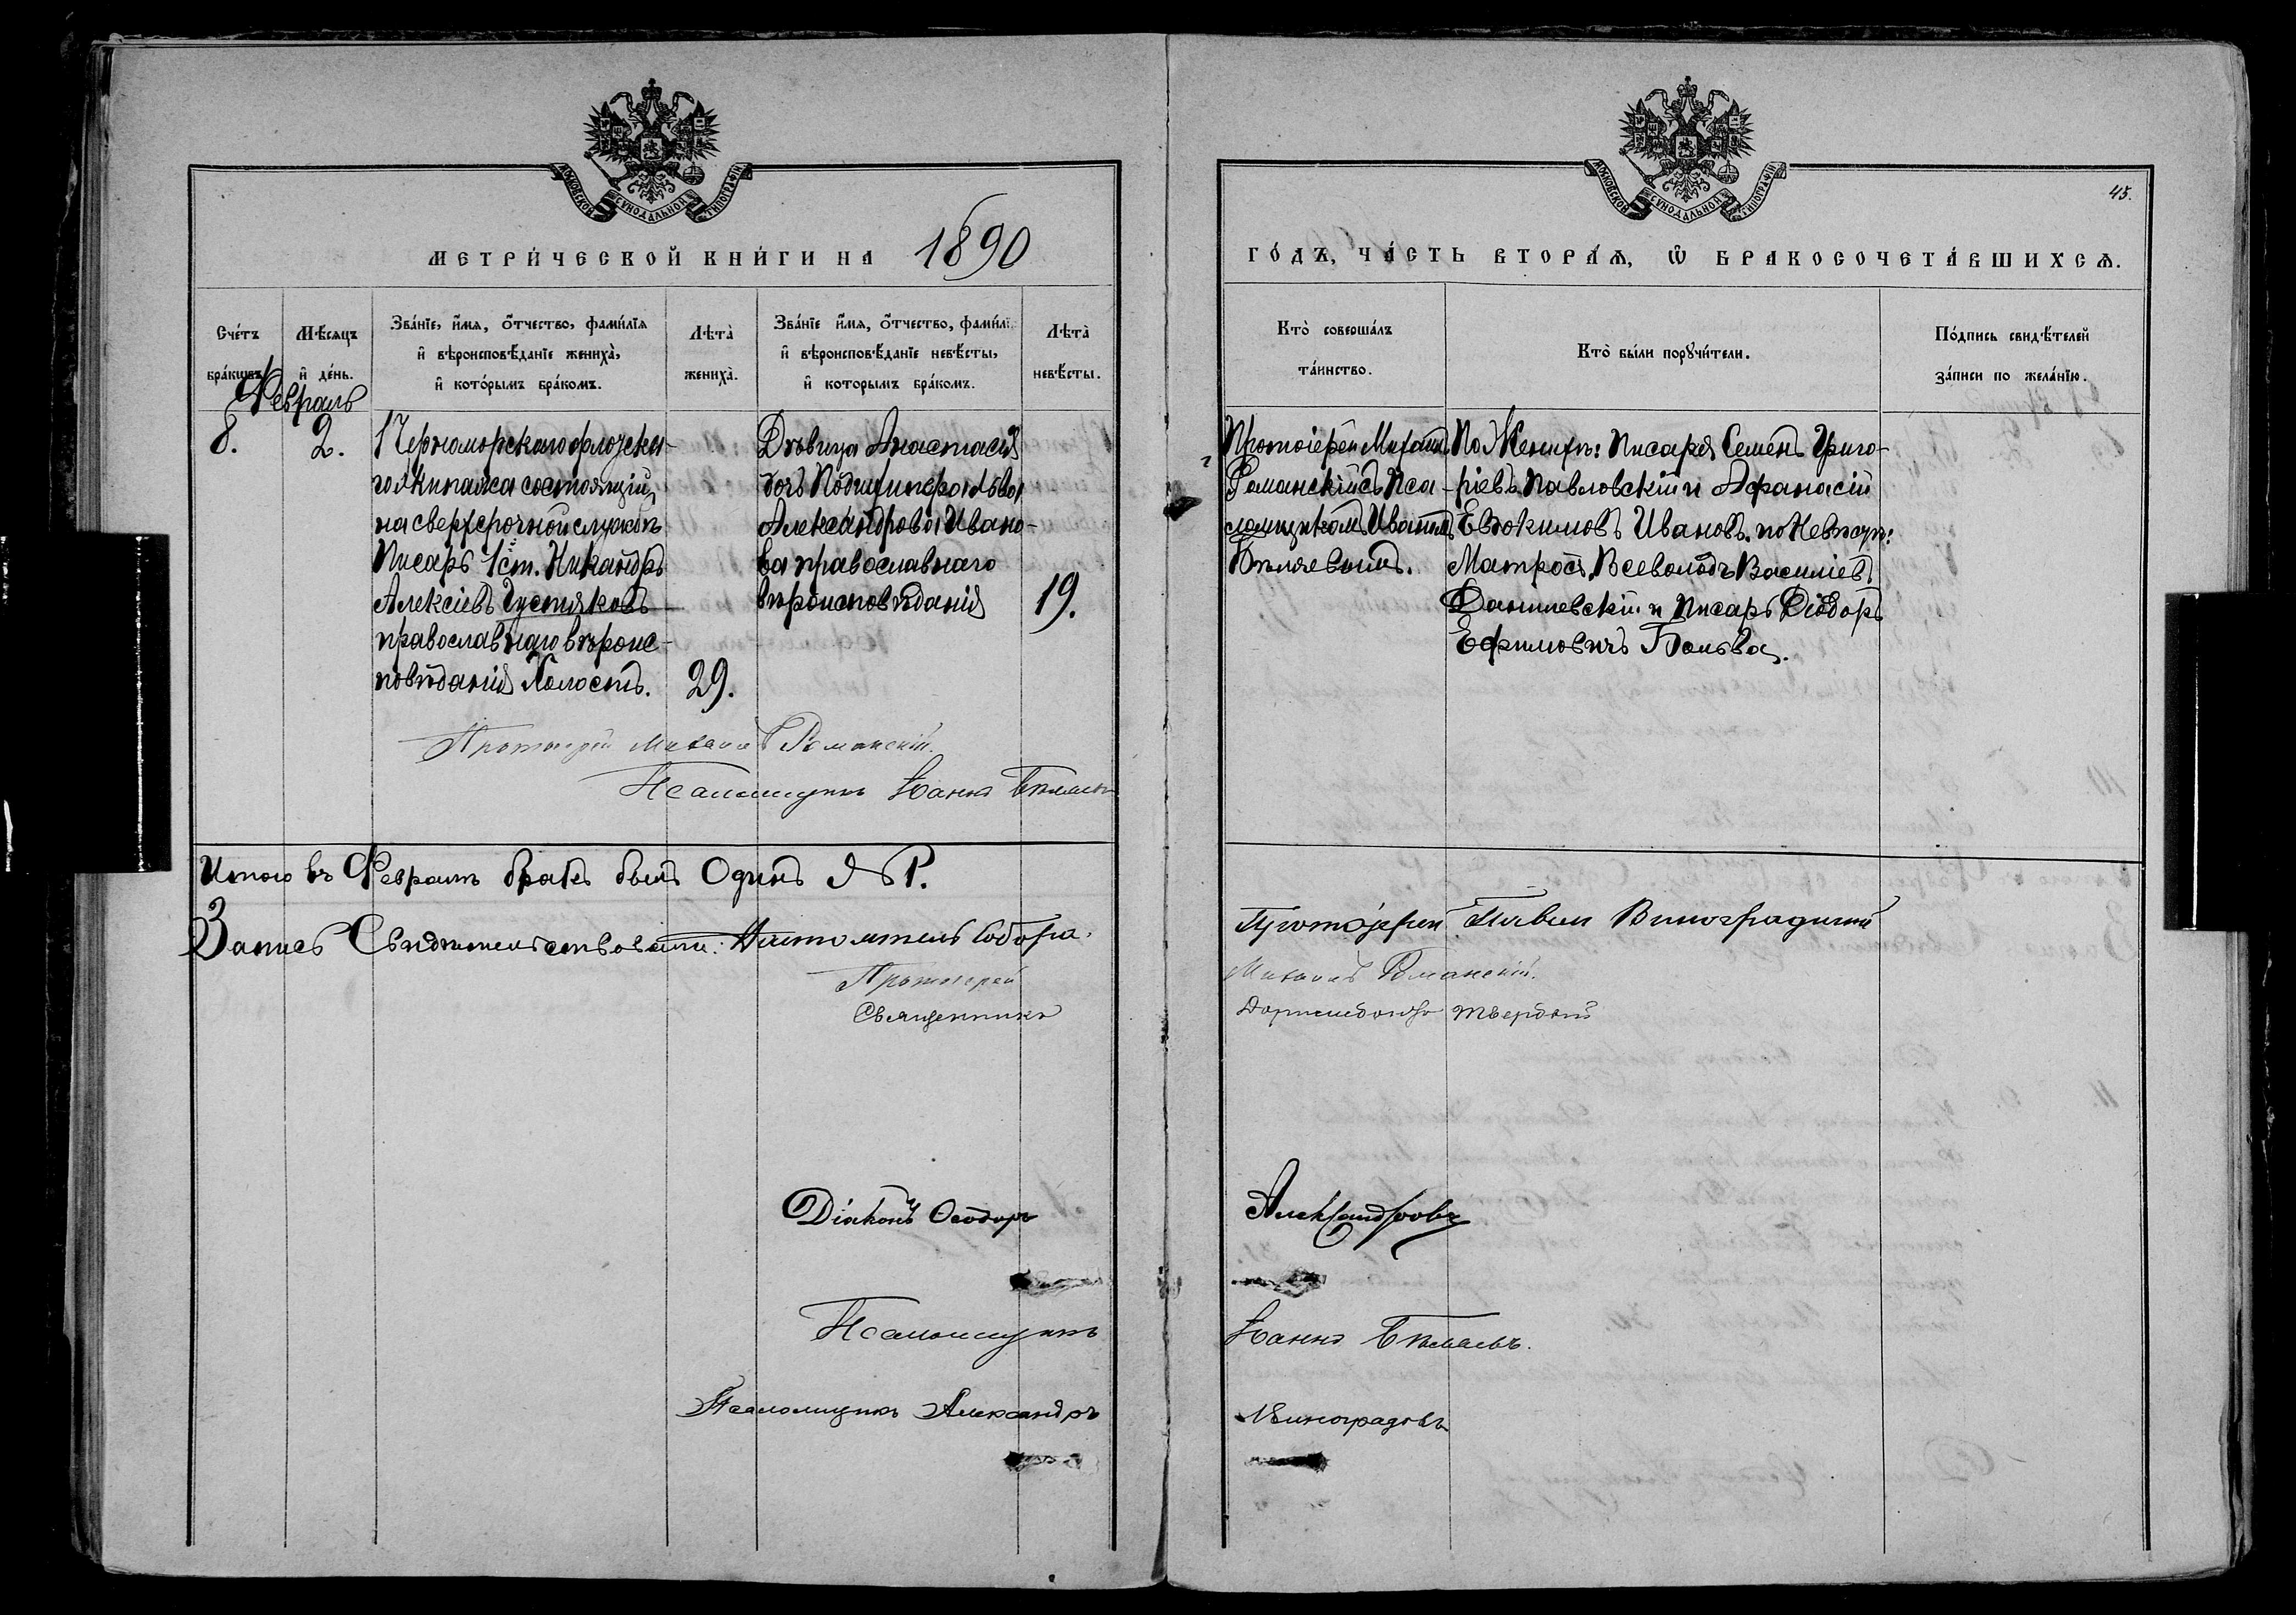 МОСКОВСКОЙ СѴНОДАЛЬНОЙ ТИПОГРАФІИ
МЕТРИ́ЧЕСКОЙ КНИ́ГИ НА 1890
Сче́тъ бра́кѡвъ.
Мѣ́сяцъ и҆ де́нь.
Зва́нїе, и҆́мѧ, ѻ҆́тчество, фами́лїѧ
и҆ вѣроисповѣ́данїе женихà,
и҆ кото́рымъ бра́комъ.
Лѣтà женихà.
Зва́нїе и҆́мѧ, ѻ҆́тчество, фами́лї
и҆ вѣроисповѣ́данїе невѣ́сты,
и҆ которымъ бра́комъ.
Лѣтà невѣ́сты.
Февраль
8.
2.
1 Черноморскаго флотска-
го Экипажа состоящій
на сверхсрочной службѣ
Писарь 1 ст. Никандръ
Алексіевъ Густяковъ
православнаго вѣроис-
повѣданія Холостъ.
29.
Дѣвица Анастасія
дочь Подшкипера Льва
Александрова Ивано-
ва православнаго
вѣроисповѣданія
19.
Протоіерей Михаилъ Романскій.
Псаломщикъ Іаннъ Бѣляевъ
Итого въ Февралѣ бракъ былъ Одинъ № 1.
Запись Свидѣтельствовали: Настоятель Собора,
Протоіерей
Священникъ
Діаконъ Ѳеодоръ
Псаломщикъ
Псаломщикъ Александръ
МОСКОВСКОЙ СѴНОДАЛЬНОЙ ТИПОГРАФІИ
45.
ГО́ДЪ, ЧА́СТЬ ВТОРА́Ѧ, Ѡ҆ БРАКОСОЧЕТА́ВШИХСѦ.
Кто̀ соверша́лъ та́инство.
Кто̀ бы́ли порꙋчи́тели.
По́дпись свидѣ́телей
за́писи по жела́нїю.
Протоіерей Михаилъ
Романскій съ Пса-
ломщикомъ Иваномъ
Бѣляевымъ.
По Женихѣ: Писаря Семенъ Григо-
ріевъ Павловскій и Афанасій
Евдокимовъ Ивановъ. по Невѣстѣ:
Матросъ Всеволодъ Василіевъ
Данилевскій и Писарь Ѳіодоръ
Ефимовичъ Больва.
Протоіерей Павелъ Виноградинъ
Михаилъ Романскій.
Твердый
Александровъ
Іаннъ Бѣляевъ.
Виноградовъ